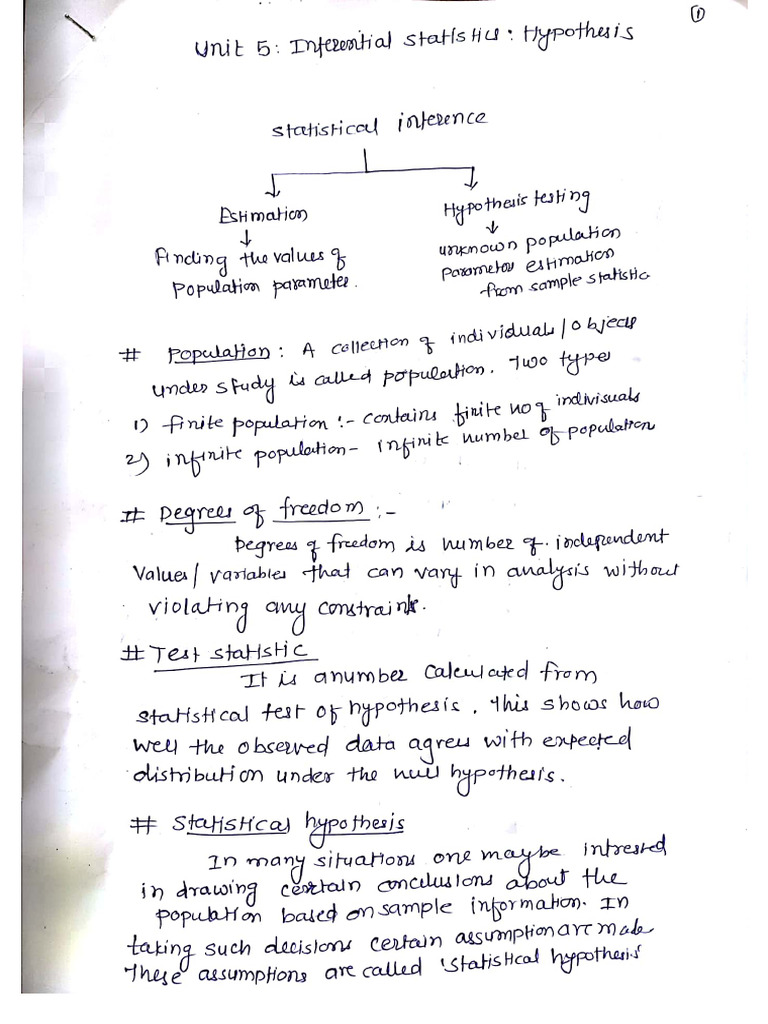 ①
Unit 5: Inferential Statistics: Hypothesis
Statistical inference
Estimation
Hypothesis testing
Finding the values of
population parameter.
unknown population
parameter estimation
from sample statistic
# Population: A collection of individuals/objects
under study is called population. Two type
1) finite population :- contains finite no of indivisuals
2) infinite population - infinite number of population
# Degrees of freedom :-
Degrees of freedom is number of independent
values/variables that can vary in analysis without
violating any constraints.
# Test statistic
It is a number calculated from
statistical test of hypothesis. This shows how
well the observed data agrees with expected
distribution under the null hypothesis.
# Statistical hypothesis
In many situations one maybe intrested
in drawing certain conclusions about the
population based on sample information. In
taking such decisions certain assumption are made
These assumptions are called 'statistical hypothesis'